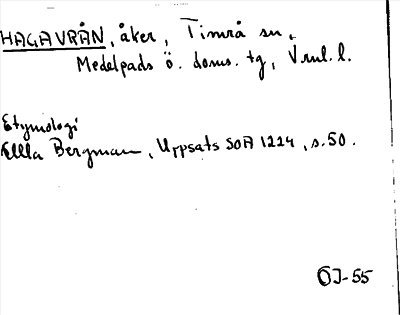 HAGAVRÅN, åker, Timrå sn,
Medelpads ö. doms. tg, V.nl. l.
Etymologi
Ella Bergman, Uppsats SOA 1224, s. 50.
ÖJ-55